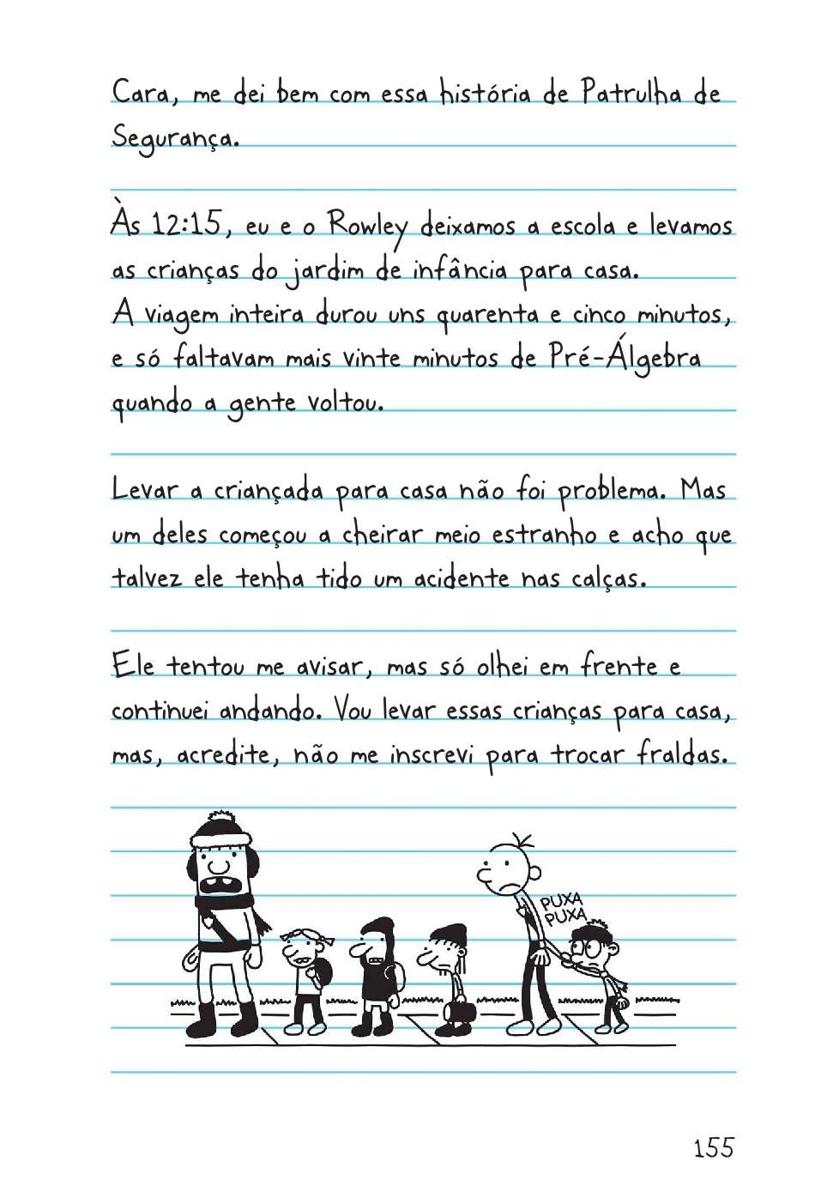 Cara, me dei bem com essa história de Patrulha de
Segurança.
Às 12:15, eu e o Rowley deixamos a escola e levamos
as crianças do jardim de infância para casa.
A viagem inteira durou uns quarenta e cinco minutos,
e só faltavam mais vinte minutos de Pré-Álgebra
quando a gente voltou.
Levar a criançada para casa não foi problema. Mas
um deles começou a cheirar meio estranho e acho que
talvez ele tenha tido um acidente nas calças.
Ele tentou me avisar, mas só olhei em frente e
continuei andando. Vou levar essas crianças para casa,
mas, acredite, não me inscrevi para trocar fraldas.
PUXA
PUXA
155